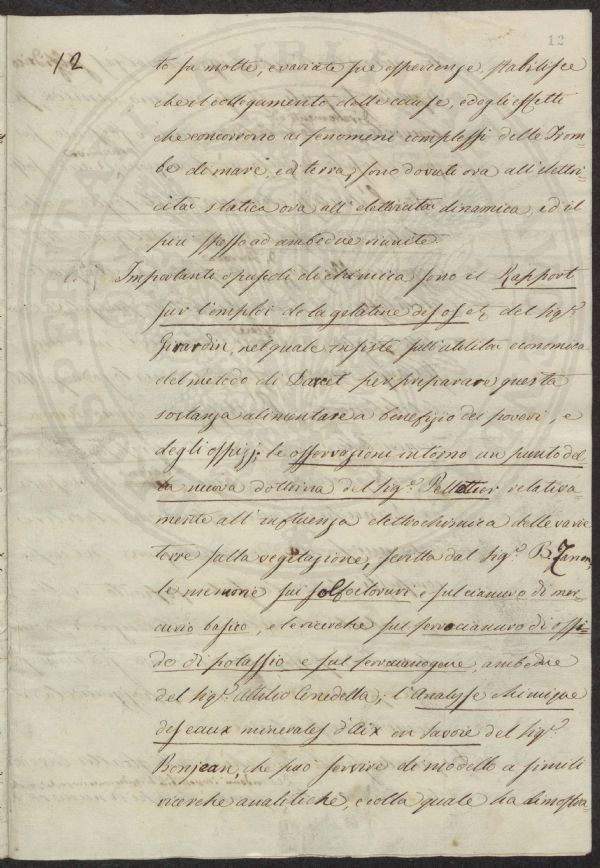 12
12
to su molte, e variate sue esperienze, stabilisce
che il collegamento delle cause, e degli effetti
che concorrono ai fenomeni complessi delle Trom=
be di mare, ed terra, sono dovuti ora all'elettri=
cità statica ora all'elettricità dinamica, ed il
più spesso ad ambedue riunite.
Importanti opuscoli di chimica sono il Rapport
sur l'emploi de la gelatine des os etc del Sigr.
Girardin, nel quale insiste sull'utilità economica
del metodo di Darcet per preparare questa
sostanza alimentare a benefizio dei poveri, e
degli ospizj; le osservazioni intorno un punto del
la nuova dottrina del Sigr. Pelletier relativa=
mente all'influenza elettrochimica delle varie
terre sulla vegetazione, scritta dal Sigr. B. Zanon,
le memorie sui solfocloruri e sul cianuro di mer=
curio basico, e le ricerche sul ferrocianuro di ossi=
do di potassio e sul ferrocianogene, ambedue
del Sigr. Attilio Cenedella; l'Analyse chimique
des eaux minerales d'Aix en Savoie del Sigr.
Bonjean, che può servire di modello a simili
ricerche analitiche, e colla quale ha dimostra=